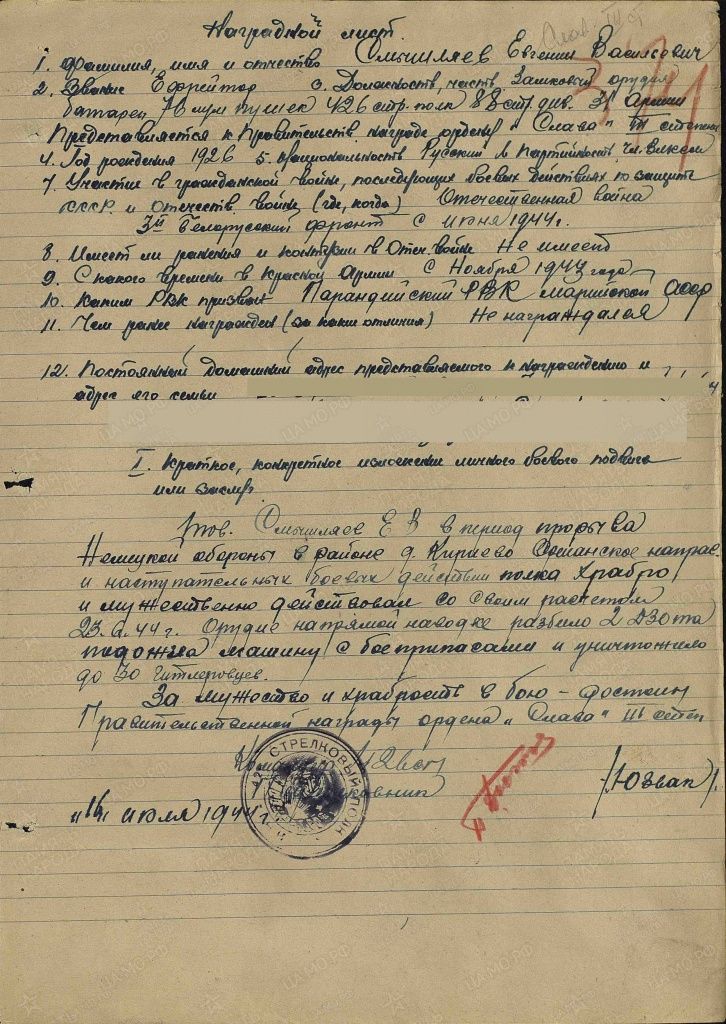 Наградной лист.
Слав. III ст
1. Фамилия, имя и отчество Смышляев Евгений Васильевич
2. Звание Ефрейтор 3. Должность, часть Замковый орудия
батареи 76 м/м пушек 426 стр. полк 88 стр. див. 31 Армии
Представляется к Правительств. награде ордену "Слава" III степени
4. Год рождения 1926 5. Национальность Русский 6. Партийность чл. ВЛКСМ
7. Участие в гражданской войне, последующих боевых действиях по защите
СССР и отечеств. войне (где, когда) Отечественная война
3й Белорусский фронт с июня 1944 г.
8. Имеет ли ранения и контузии в Отеч. войне Не имеет
9. С какого времени в Красной Армии с Ноября 1943 года
10. Каким РВК призван Параньгийский РВК Марийской АССР
11. Чем ранее награжден (за какие отличия) Не награждался
12. Постоянный домашний адрес представляемого к награждению и
адрес его семьи
I. Краткое, конкретное изложение личного боевого подвига
или заслуг
тов. Смышляев Е В в период прорыва
Немецкой обороны в районе д. Киреево Оршанское направ.
и наступательных боевых действий полка храбро
и мужественно действовал со своим расчетом
23.6.44 г. Орудие на прямой наводке разбило 2 Дзота
подожгла машину с боеприпасами и уничтожило
до 30 гитлеровцев.
За мужество и храбрость в бою - достоин
Правительственной награды ордена "Слава" III степ
СТРЕЛКОВЫЙ ПОЛК
(Юзвак)
"16" июля 1944 г.